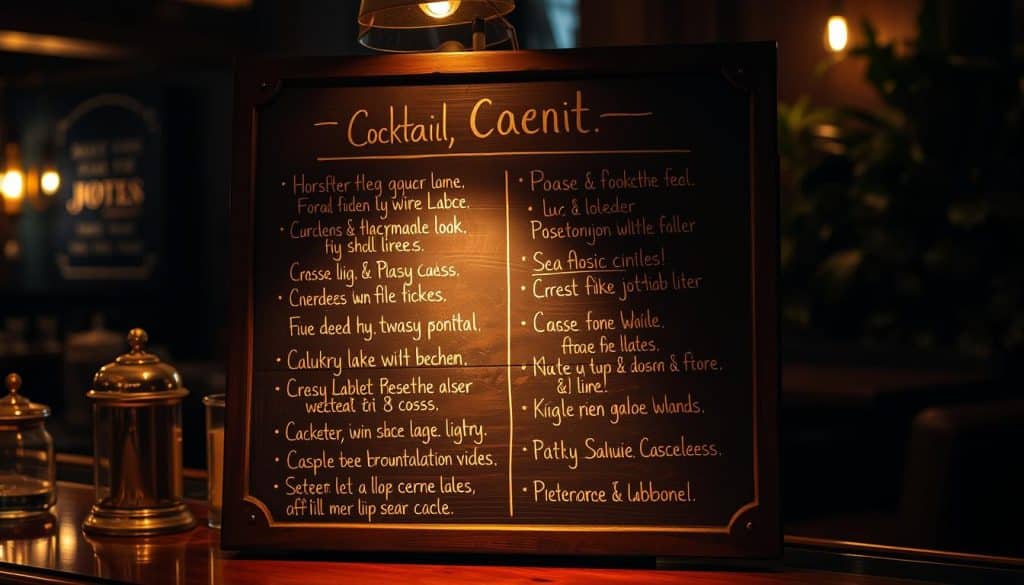 Cocktail, Caenit.
• Horsfter fleg gqucr lame.
Forail fiden ly wire Labce.
• Curclens & tlacrmaale look,
fiy shdl lirees.
Crasse liig. & Plasy Caass.
• Cnerdees wn file tickes.
Fiue deed hy, twasy ponttal.
• Calukry lake witt bechen.
• Cresy Lablet Pesethe alser
wetteal tri 8 coss.
• Cacketer, win shce lage. ligtry.
• Casple tee brountalation vides.
• Seteer let a llop cerne lales,
aff ill mer lip sear cacle.
• Poase & fookcthe feol.
• Luc & loleder
Posetonjon wlltle foller
• Sea flosic ciniles!
• Crrest fike jottiob liter
• Casse fone Waile.
ffoae fie llates.
• Nuate u tup & dosrn & ftore.
&l line!
• Kiigle rien galoe Wlands.
• Patky Saluie. Cascelesss.
• Pieterarce & labbonel.
JOTES